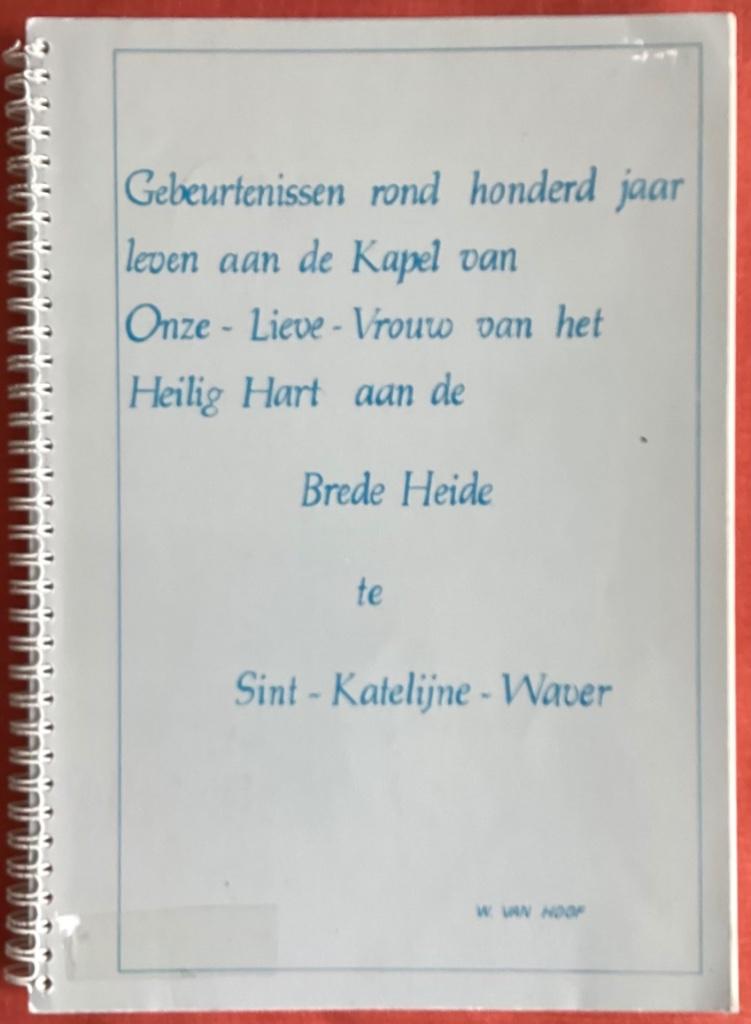 Gebeurtenissen rond honderd jaar
leven aan de Kapel van
Onze - Lieve - Vrouw van het
Heilig Hart aan de
Brede Heide
te
Sint - Katelijne - Waver
W. VAN HOOF